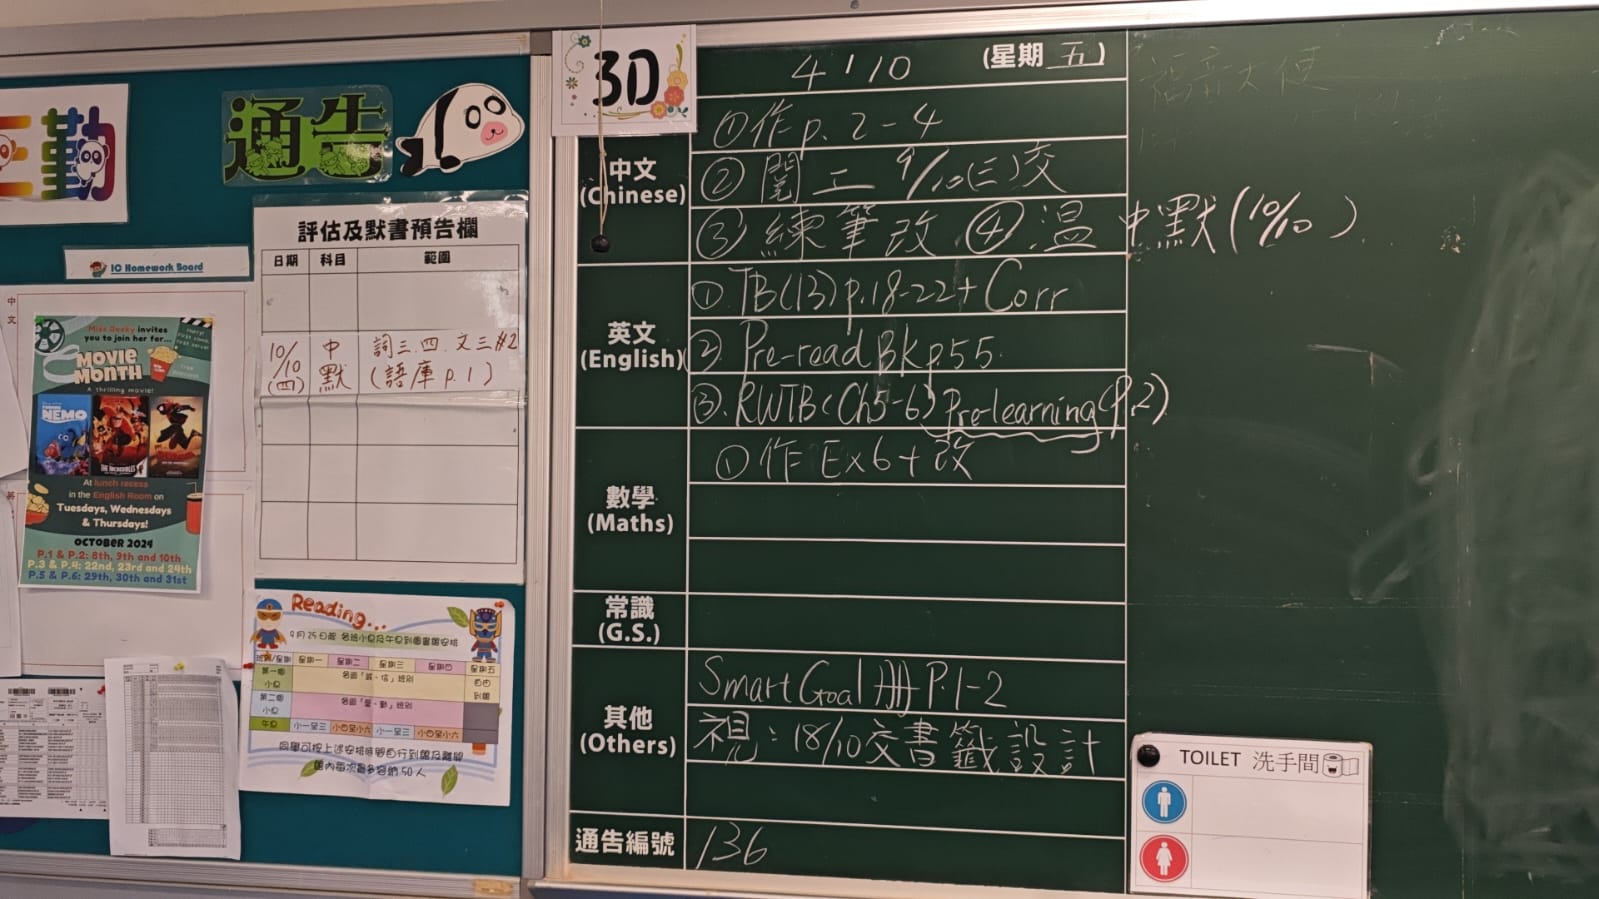 勤
通告
評估及默書預告欄
日期 科目 範圍
10/10 (四) 中默 詞三.四.文三#2 (語庫p.1)
1C Homework Board
中文
英
Miss Becky invites
you to join her for...
MOVIE
MONTH
A thrilling movie!
FINDING NEMO
THE INCREDIBLES
At lunch recess
in the English Room on
Tuesdays, Wednesdays
& Thursdays!
OCTOBER 2024
P.1 & P.2: 8th, 9th and 10th
P.3 & P.4: 22nd, 23rd and 24th
P.5 & P.6: 29th, 30th and 31st
Reading...
星期一 星期二 星期三 星期四 星期五
午息 小一至三 小四至小六 小一至三 小四至小六
同學可按上述安排時間自行到館及離開
館內每次最多容納50人
3D
4/10 (星期五)
中文
(Chinese)
①作p.2-4
② 閱工 9/10(三)交
③練筆改 ④溫中默(10/10)
英文
(English)
①.TB(1B)p.18-22+Corr
②.Pre-readBKp.55.
③.RWTB(Ch5-6)Pre-learning(p.2)
數學
(Maths)
①作Ex6+改
常識
(G.S.)
其他
(Others)
Smart Goal冊P.1-2
視:18/10交書籤設計
通告編號
136
福音大使
TOILET 洗手間